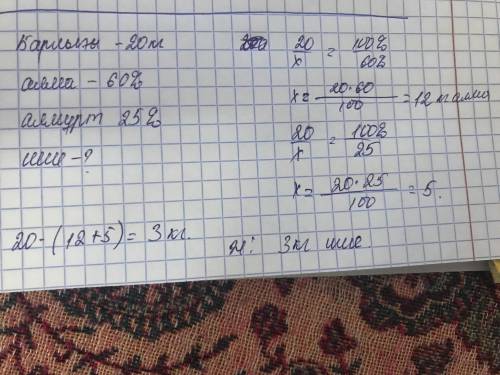 Барлығы - 20 кг
алма - 60%
алмұрт 25%
шие - ?
20 - (12+5) = 3 кг.
20/x = 100%/60%
x = 20·60/100 = 12 кг алма
20/x = 100%/25
x = 20·25/100 = 5.
Ж: 3 кг шие.